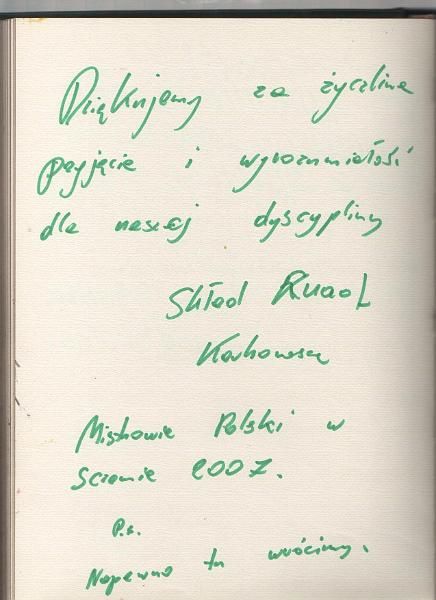 Dziękujemy za życzliwe
przyjęcie i wyrozumiałość
dla naszej dyscypliny
Skład
Mistrzowie Polski w
2007.
P.s.
Napewno tu wrócimy.